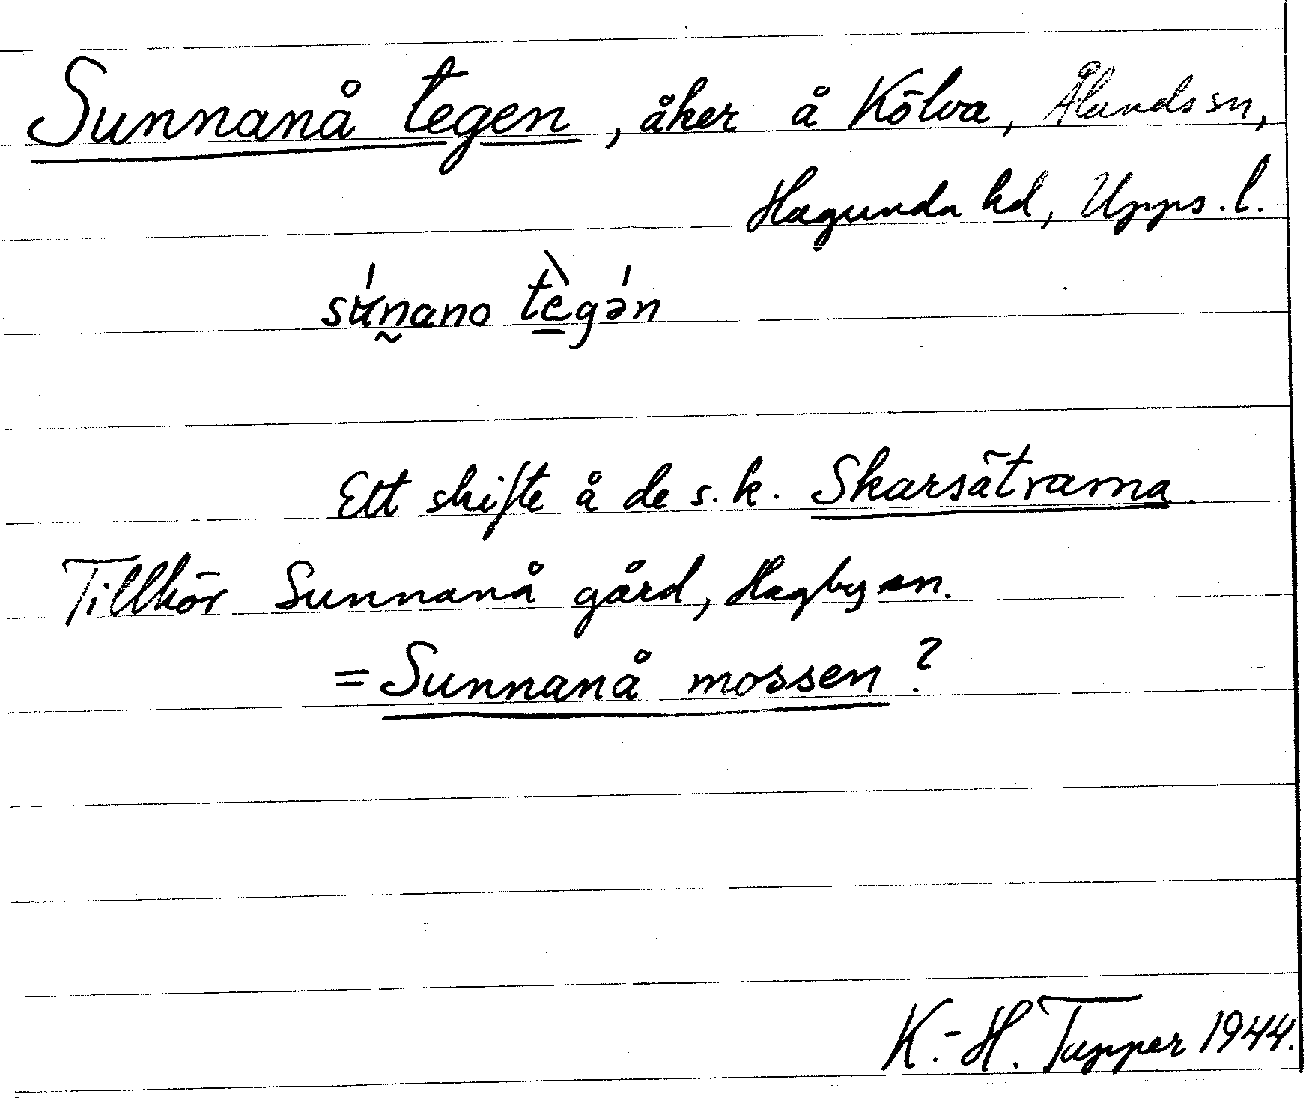 Sunnanå tegen, åker å Kölva, Ålunds sn,
Hagunda hd, Upps. l.
sún̰ano tè̱gə́n
Ett skifte å de s. k. Skarsätrarna.
Tillhör Sunnanå gård, Hagby sn.
= Sunnanå mossen ?
K.-H. Tapper 1944.